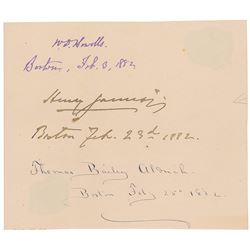 W. D. Howells.
Boston, Feb. 3, 1882.
Henry James Jr.
Boston Feb. 23rd 1882.
Thomas Bailey Aldrich.
Boston Feb 25th 1882.